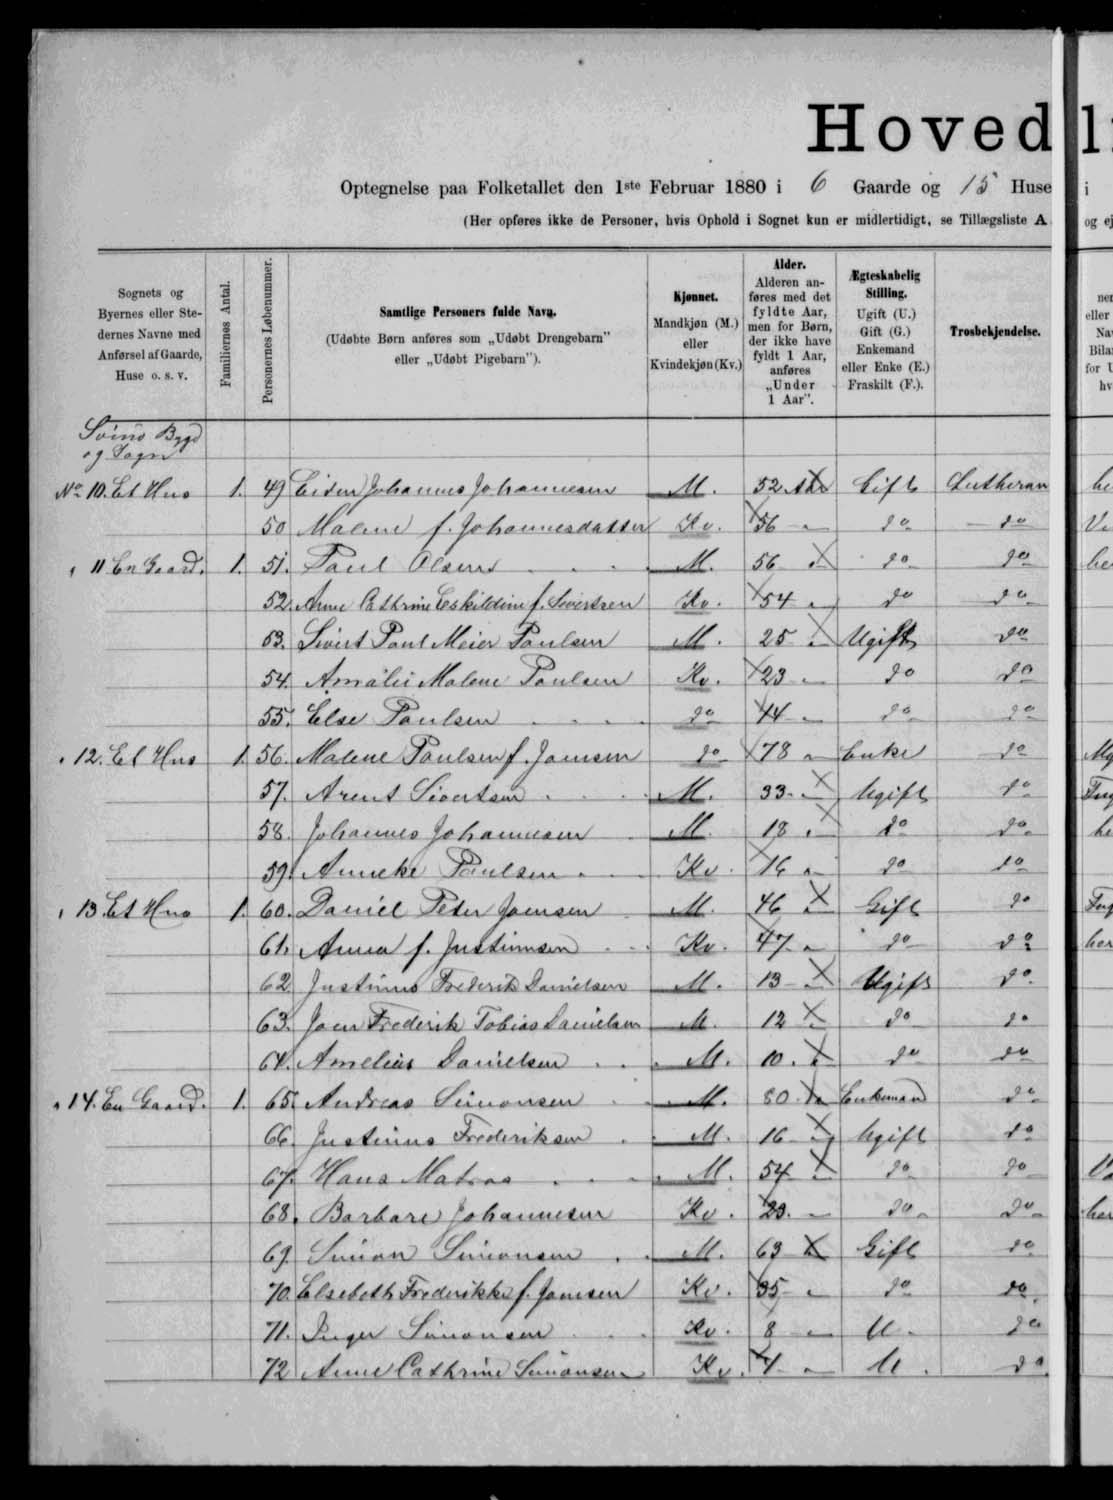 Hovedli
Optegnelse paa Folketallet den 1ste Februar 1880 i 6 Gaarde og 15 Huse i
(Her opføres ikke de Personer, hvis Ophold i Sognet kun er midlertidigt, se Tillægsliste A og ej
Sognets og Byernes eller Stedernes Navne med Anførsel af Gaarde, Huse o. s. v.
Familiernes Antal.
Personernes Løbenummer.
Samtlige Personers fulde Navn.
(Udøbte Børn anføres som „Udøbt Drengebarn" eller „Udøbt Pigebarn").
Kjønnet.
Mandkjøn (M.) eller Kvindekjøn (Kv.)
Alder.
Alderen anføres med det fyldte Aar, men for Børn, der ikke have fyldt 1 Aar, anføres „Under 1 Aar".
Ægteskabelig Stilling.
Ugift (U.) Gift (G.) Enkemand eller Enke (E.) Fraskilt (F.).
Trosbekjendelse.
Svinø Bygd
og Sogn
No 10. Et Hus 1. 49 Johannes Johannesen M. 52 Gift Lutheran
50 Malene f. Johannesdatter Kv. 56 do do
11 En Gaard. 1. 51. Poul Olsen M. 56 do do
52. Anne Cathrine Eskildine f. Sivertsen Kv. 54 do do
53. Sivert Poul Meier Poulsen M. 25 Ugift do
54. Amalie Malene Poulsen Kv. 23 do do
55. Else Poulsen do 14 do do
12. Et Hus 1. 56. Malene Poulsen f. Joensen do 78 Enke do
57. Arent Sivertsen M. 33 Ugift do
58. Johannes Johannesen M. 18 do do
59. Anneke Poulsen Kv. 16 do do
13 Et Hus 1. 60. Daniel Peter Joensen M. 46 Gift do
61. Anna f. Justinussen Kv. 47 do do
62 Justinus Frederik Danielsen M. 13 Ugift do
63. Joen Frederik Tobias Danielsen M. 12 do do
64. Amelius Danielsen M. 10 do do
14. En Gaard. 1. 65. Andreas Simonsen M. 80 Enkemand do
66. Justinus Frederiksen M. 16 Ugift do
67. Hans Matras M. 54 do do
68. Barbara Johannesen Kv. 23 do do
69. Simon Simonsen M. 63 Gift do
70. Elsebeth Frederikke f. Joensen Kv. 35 do do
71. Inger Simonsen Kv. 8 U. do
72 Anne Cathrine Simonsen Kv. 4 U. do